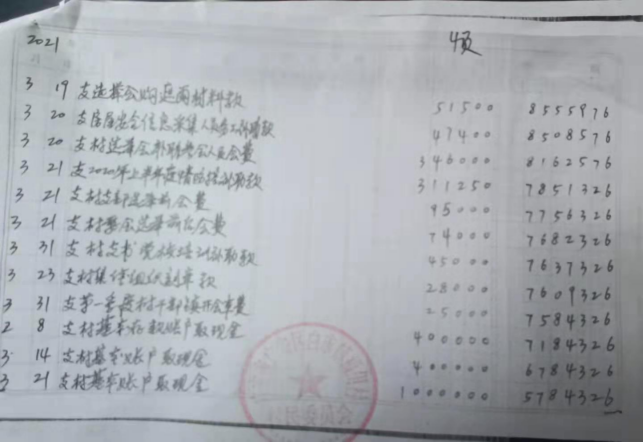 2021 4页
3 19 支选举会购桌面材料款 51500 8555976
3 20 支居居安全信息采集人员务工补助款 47400 8508576
3 20 支村选举会补助参会人员会费 346000 8162576
3 21 支2020年上半年疫情防控补助款 311250 7851326
3 21 支村支部选举前会费 95000 7756326
3 21 支村委会选举前后会费 74000 7682326
3 31 支村支书党校培训补助款 45000 7637326
3 23 支村集体组织刻章款 28000 7609326
3 31 支第一季度村干部镇开会车费 25000 7584326
2 8 支村基本存款账户取现金 400000 7184326
3 14 支村基本账户取现金 400000 6784326
3 21 支村基本账户取现金 1000000 5784326